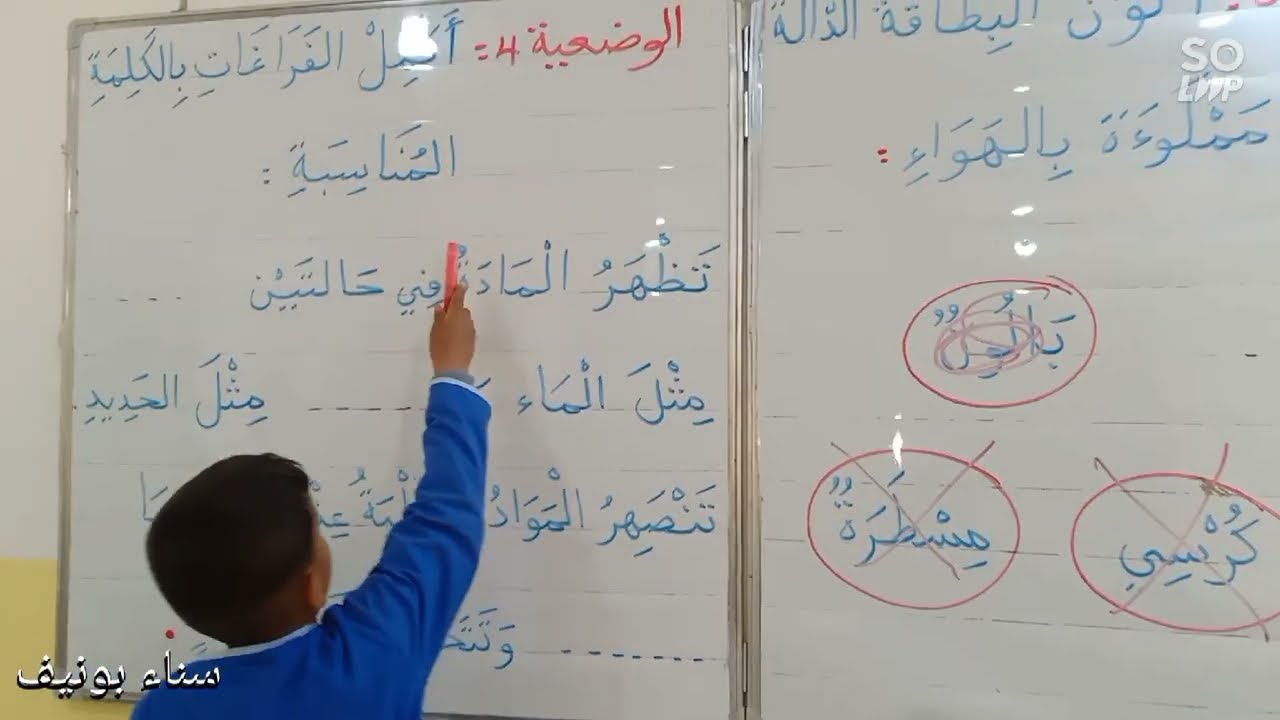 الوضعية 4: أَكْمِلْ الفَرَاغَاتِ بِالكَلِمَةِ
المُنَاسِبَةِ :
تَظْهَرُ الْمَادَةُ فِي حَالتَيْن - - - -
مِثْلَ الْمَاء - - - - - - مِثْلَ الحَدِيدِ.
تَنْصَهِرُ الْمَوَادُ
البِطَاقَةَ الدَّالَةَ
مَمْلُوءَةَ بِالهَوَاءِ :
مِسْطَرَةٌ
كُرْسِي
SO
LOOP
سناء بونيف